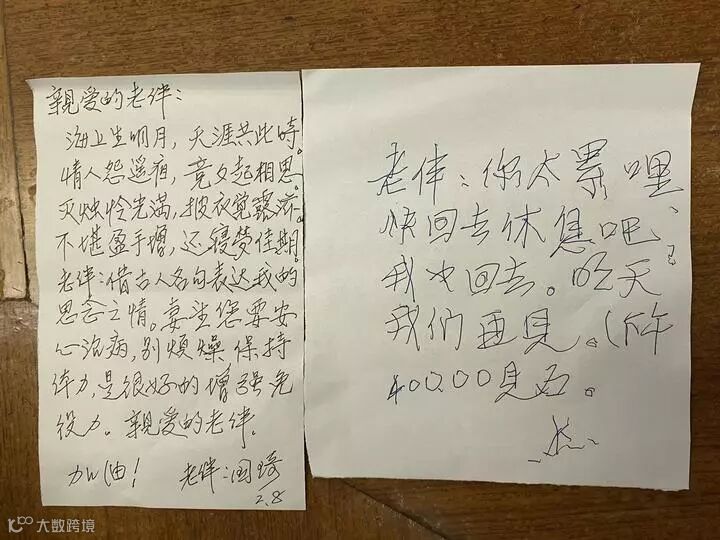 亲爱的老伴：
海上生明月，天涯共此時。
情人怨遥夜，竟夕起相思。
灭烛怜光满，披衣觉露滋。
不堪盈手赠，还寝夢佳期。
老伴：借古人名句表达我的
思念之情。妻望您要安
心治病，别煩燥保持
体力，是很好的增强免
役力。亲爱的老伴，
加油！ 老伴：国琦
2.8
老伴：你太累哩
快回去休息吧、
我也回去。明天
我们再见。（下午
400.00見面。
大数跨境